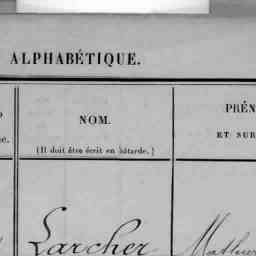 ALPHABÉTIQUE.
NOM.
(Il doit être écrit en bâtarde.)
PRÉN
ET SUR
Larcher